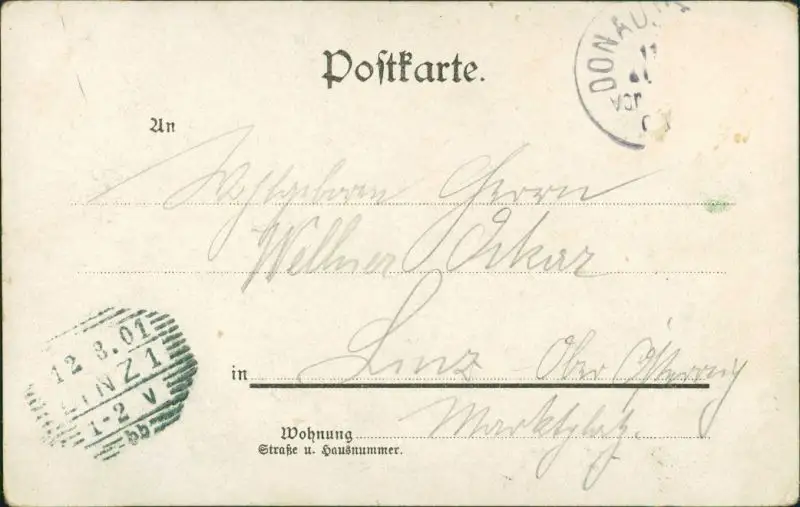 Postkarte.
DONAU
11
An
Wohlgeboren Herrn
Wellner Oskar
12 8.01
LINZ 1
1-2 V
bb
in Linz Ober Österreich
Marktplatz.
Wohnung
Straße u. Hausnummer.